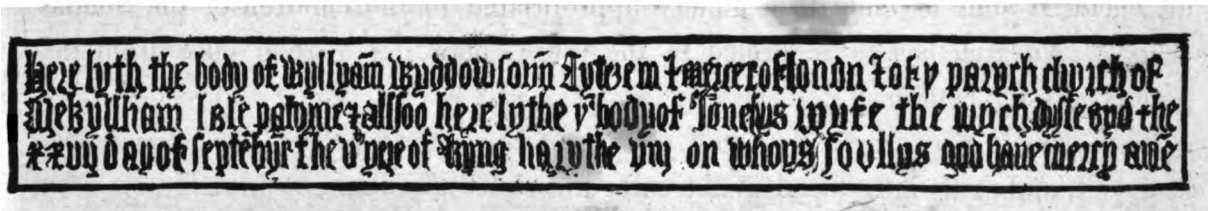 Here lyth the body of wyllyam̄ wyddowsoun̄ Cytezem & mercer of london & of yͤ parych chyrch of
Mekyllham late patrone & allsoo here lythe yͤ body of Jone hys wyfe the wych dyssesyd the
xxvij day of septēbyr the vͭ yere of Kyng hary the viij on whoys soullys god have mercy amē